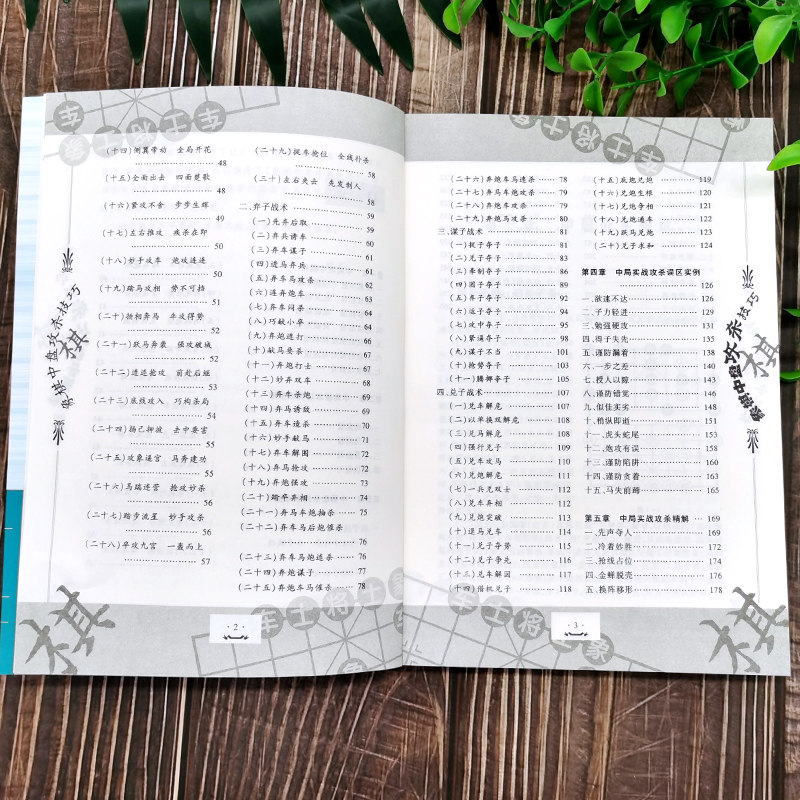 (十四)侧翼带动 全局开花
48
(十五)全面出击 四面楚歌
48
(十六)紧攻不舍 步步生辉
49
(十七)左右推攻 疾杀在即
50
(十八)妙手攻车 炮攻连连
50
(十九)踏马攻相 势不可挡
51
(二十)扬相奔马 车攻得势
52
(二十一)跃马奔袭 强攻破城
52
(二十二)连连抢攻 前赴后继
53
(二十三)底线攻入 巧构杀局
54
(二十四)扬己抑彼 去中要害
54
(二十五)攻象逼宫 马奔建功
55
(二十六)马踹连营 抢攻妙杀
55
(二十七)踏步流星 妙手攻杀
56
(二十八)卒攻九宫 一蠢而上
57
(二十九)捉车抢位 全线扑杀
58
(三十)左右夹击 先发制人
58
二、弃子战术 59
(一)先弃后取 59
(二)弃兵诱车 60
(三)弃车谋子 61
(四)进马弃兵 61
(五)弃车马攻杀 61
(六)连弃炮车 62
(七)弃车闷杀 63
(八)巧献小卒 64
(九)弃炮进打 65
(十)献马要杀 65
(十一)弃炮打士 66
(十二)妙弃双车 67
(十三)弃车杀象 68
(十四)弃马诱敌 69
(十五)弃车造杀 70
(十六)妙手献马 71
(十七)弃车解围 72
(十八)弃马抢攻 73
(十九)弃炮强攻 74
(二十)踏卒弃相 74
(二十一)弃马车炮抽杀 75
(二十二)弃车马后炮催杀
76
(二十三)弃车马炮连杀 76
(二十四)弃炮谋子 77
(二十五)弃炮车马催杀 78
· 2 ·
(二十六)弃炮车马连杀 78
(二十七)弃炮车马攻杀 79
(二十八)弃马车炮攻杀 79
(二十九)弃炮马攻杀 80
三、谋子战术 81
(一)捉子夺子 81
(二)兑子夺子 83
(三)牵制夺子 84
(四)困子夺子 86
(五)弃子夺子 92
(六)运子夺子 94
(七)攻中夺子 96
(八)紧逼夺子 97
(九)谋子不当 101
(十)抢势夺子 104
(十一)腾挪夺子 107
四、兑子战术 107
(一)兑车解危 107
(二)以单换双解危 109
(三)兑马解危 109
(四)强行兑子 110
(五)兑车攻马 111
(六)兑车捉炮 112
(七)一兵兑双士 112
(八)兑车弃相 112
(九)兑炮突破 113
(十)退马兑车 114
(十一)兑子夺势 115
(十二)兑子争先 116
(十三)兑车解困 117
(十四)借机兑子 118
(十五)底炮兑炮 119
(十六)兑炮生根 120
(十七)兑炮争相 121
(十八)兑炮通车 122
(十九)跃马兑炮 123
(二十)兑子求和 124
第四章 中局实战攻杀误区实例
126
一、欲速不达 126
二、子力轻进 128
三、勉强硬攻 131
四、得子失先 135
五、谨防漏着 138
六、一步之差 140
七、授人以隙 143
八、谨防错觉 146
九、似佳实劣 148
十、稍纵即逝 151
十一、虎头蛇尾 153
十二、炮攻有误 158
十三、谨防陷阱 160
十四、谨防贪着 163
十五、马失前蹄 165
第五章 中局实战攻杀精解 169
一、先声夺人 169
二、冷着妙胜 172
三、抢线占位 174
四、金蝉脱壳 176
五、换阵移形 178
· 3 ·
象棋中盘攻杀技巧
棋
象棋中盘攻杀技巧
棋
棋
棋